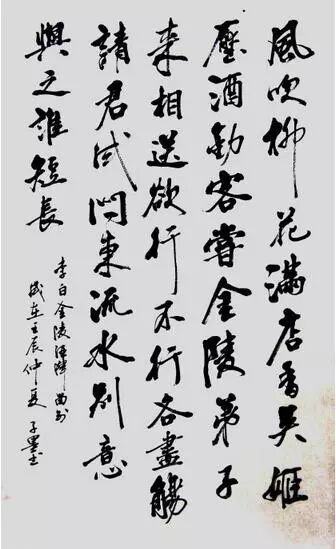 風吹柳花滿店香吳姬
壓酒勸客嘗金陵弟子
來相送欲行不行各盡觴
請君試問東流水別意
與之誰短長
李白金陵酒肆留別
歲在壬辰仲夏 子墨